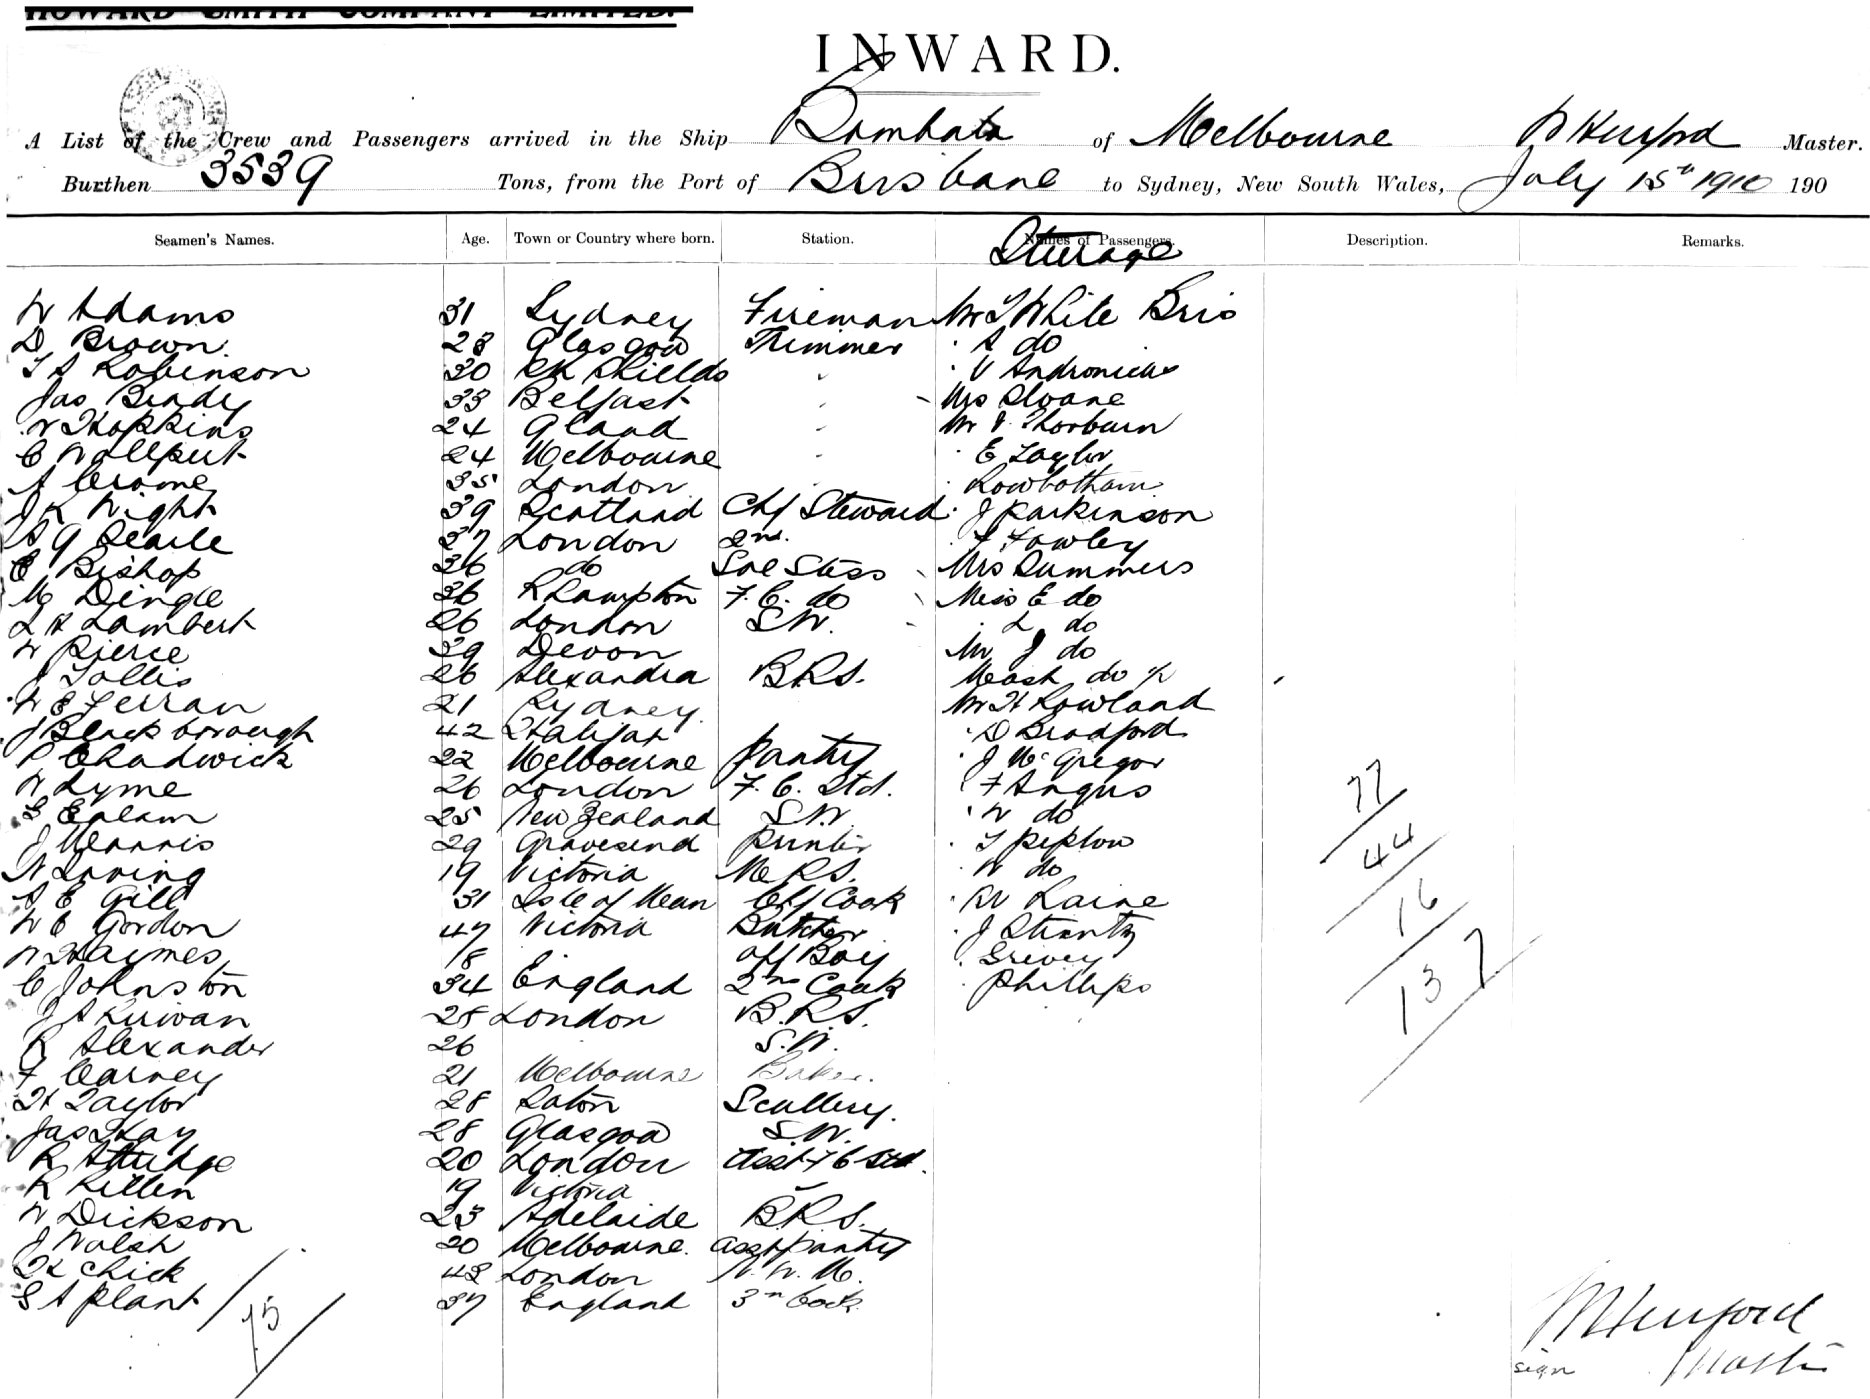 HOWARD SMITH COMPANY LIMITED.
INWARD.
A List of the Crew and Passengers arrived in the Ship Bombala of Melbourne Master.
Burthen 3539 Tons, from the Port of Brisbane to Sydney, New South Wales, July 15th 1910 190
Seamen's Names. Age. Town or Country where born. Station. Names of Passengers. Description. Remarks.
Steerage
W Adams 31 Sydney Fireman Mr T White Bris
D Brown 28 Glasgow Trimmer A do
T A Robinson 30 Shields " V Andronicus
Jas Brady 33 Belfast " Mrs Sloane
W Hopkins 24 " Mr V Thorburn
C 24 Melbourne " E Taylor
A Crome 35 London Rowbotham
J R Wight 39 Scotland Chf Steward J Parkinson
A G Searle 37 London 2nd F Fowley
E Bishop 36 do Sal Stess Mrs Summers
M Dingle 36 F.C. do Miss E do
L H Lambert 26 London S.W. L do
W Pierce 39 Devon Mr J do
J Tollis 26 Alexandra B.R.S. Mast do ½
W E Ferran 21 Sydney Mr H Rowland
J Blackborough 42 Halifax D Bradford
P Chadwick 22 Melbourne Pantry J McGregor
W Lyme 26 London F.C. Std. F Angus
S Ealam 25 New Zealand S.W. W do
J Mannis 29 Gravesend Printer T Peplow
W Loving 19 Victoria M R S. W do
A E Gill 31 Isle of Mann Chf Cook W Raine
W C Gordon 47 Victoria Butcher J
W Haymes 18 Off Boy
C Johnston 34 England 2nd Cook Phillips
J A Kirwan 25 London B.R.S.
R Alexander 26 S.W.
F Carney 21 Melbourne Baker.
H Taylor 28 Scullery.
Jas Hay 28 Glasgow S.W.
R 20 London Asst F C Std.
R Killen 19 Victoria "
W Dickson 23 Adelaide B.R.S.
J Walsh 20 Melbourne. Asst Pantry
Chick 43 London N.W.M.
S A Plant 37 England 3rd Cook
77
44
16
137
75
sign Master